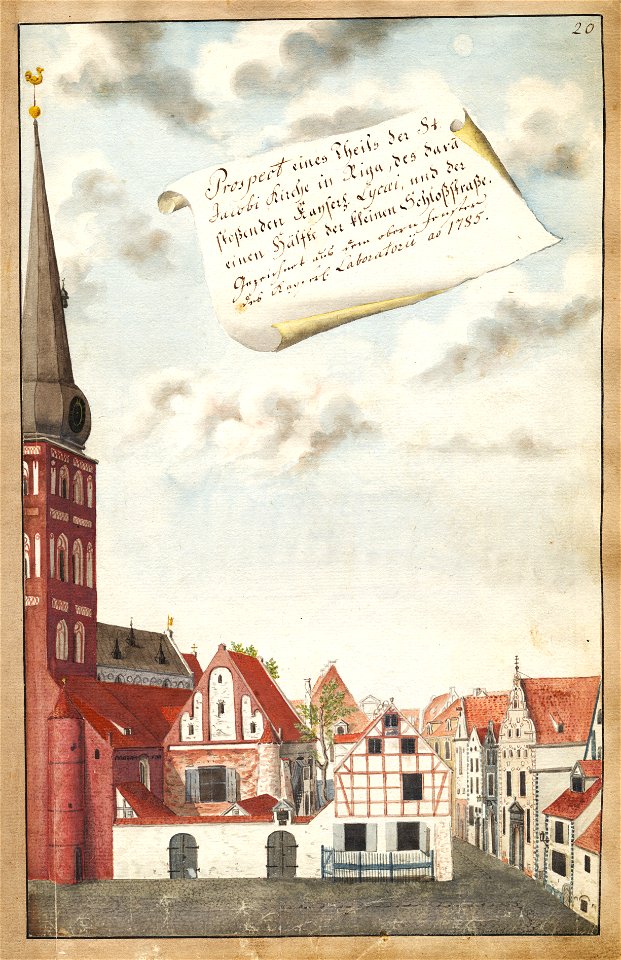 20
Prospect eines Theils der St.
Jacobi Kirche in Riga, des darā
stoßenden Kayserl. Lycei, und der
einen Hälfte der kleinen Schloßstraße.
Gezeichnet aus dem obern Fenster
des Kayserl. Laboratorii ao 1785.